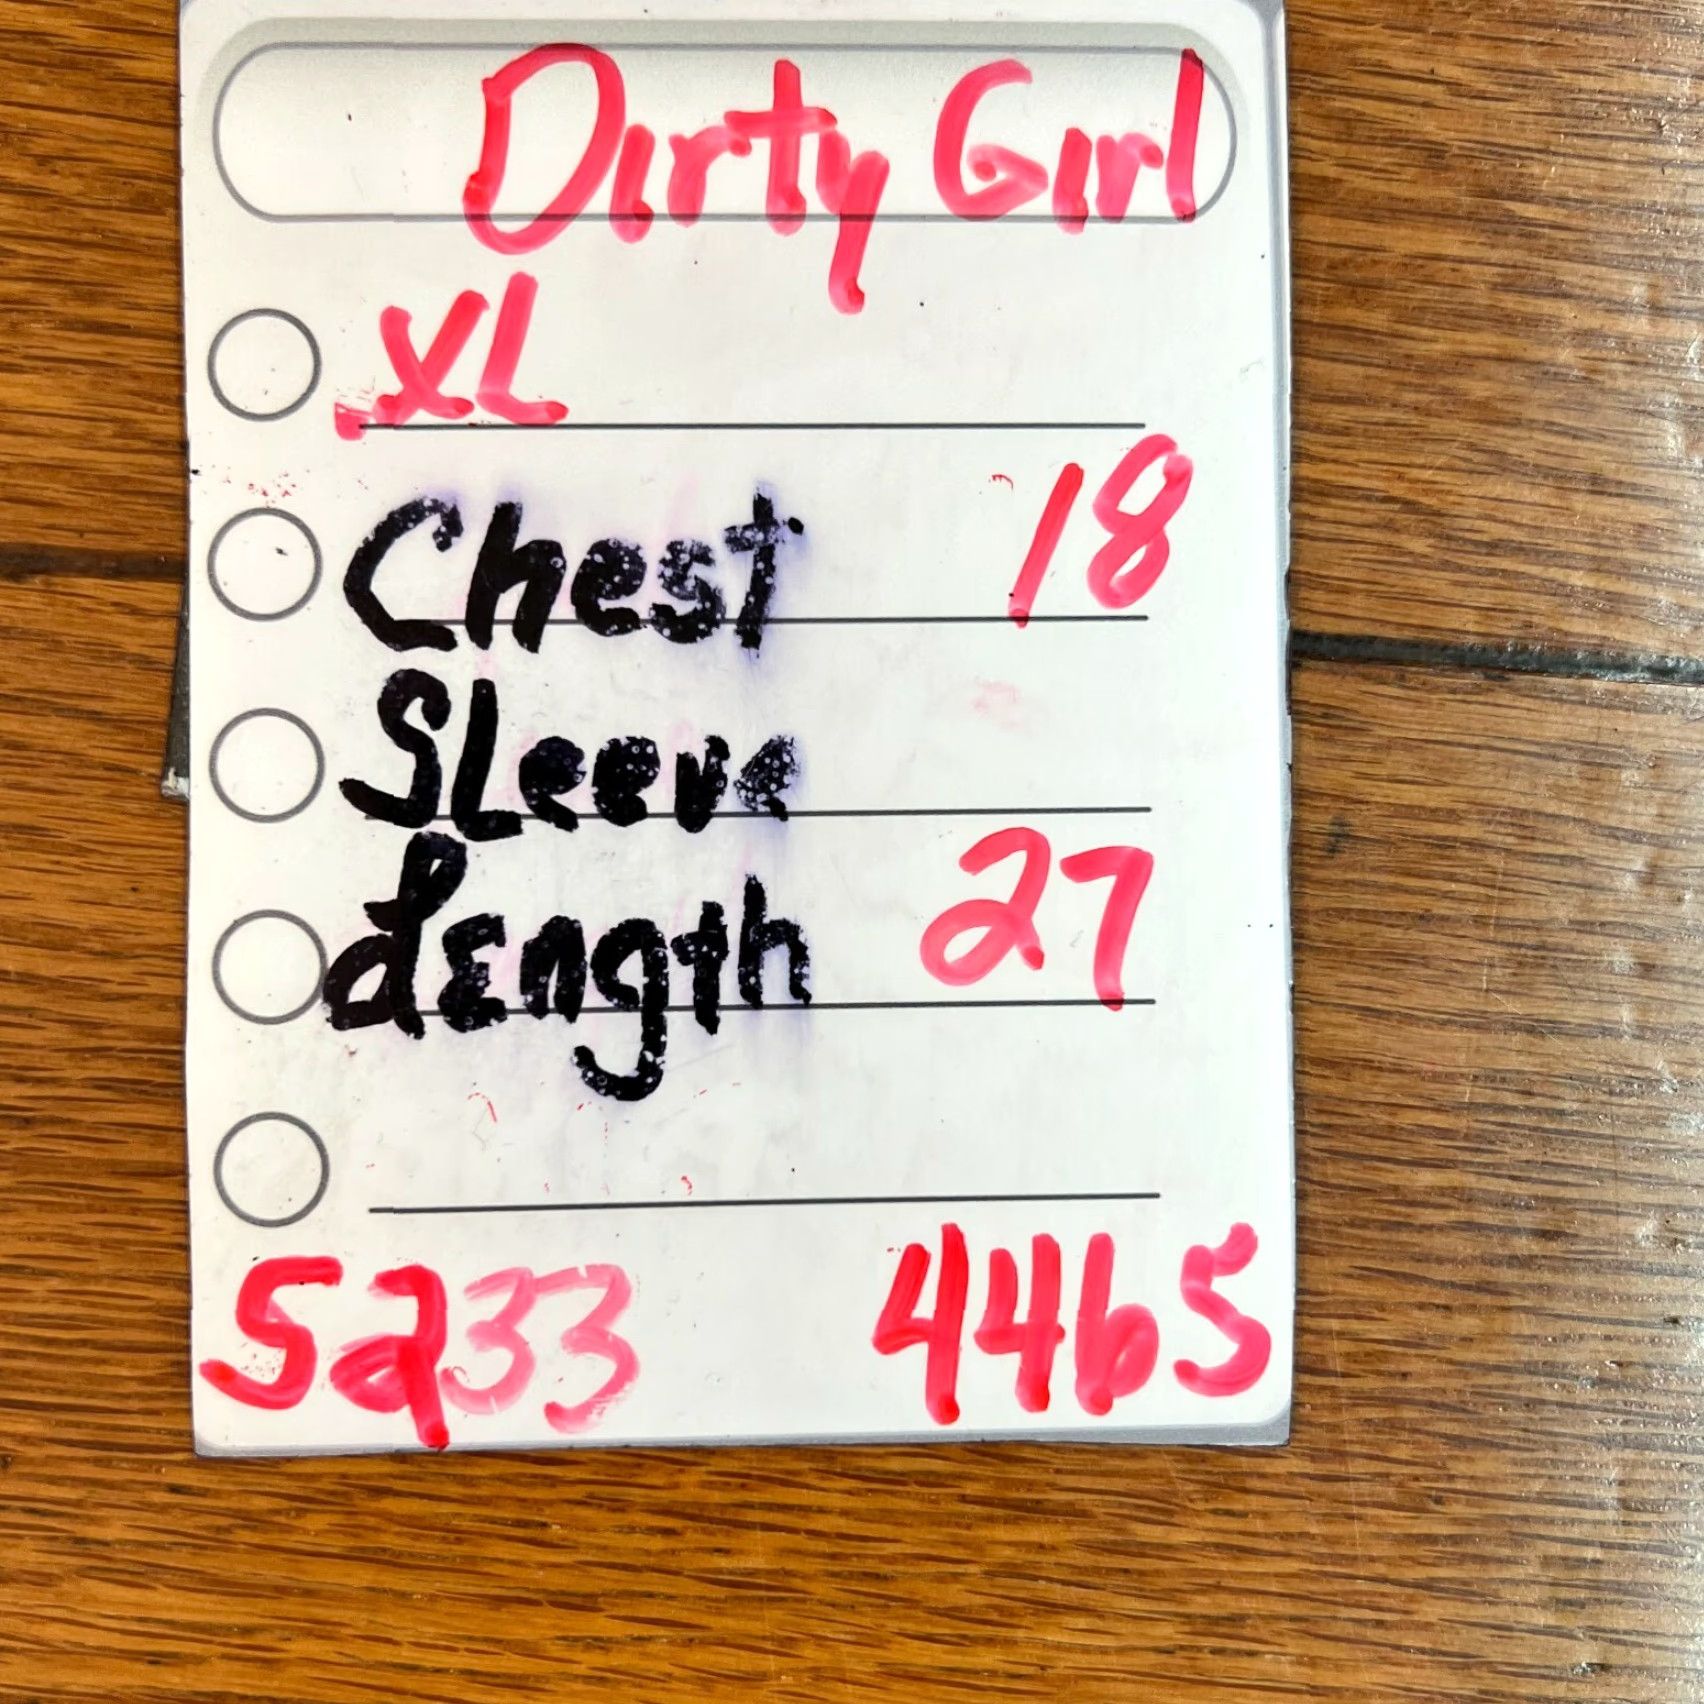 Dirty Girl
XL
Chest 18
SLeeve
Length 27
5233 4465